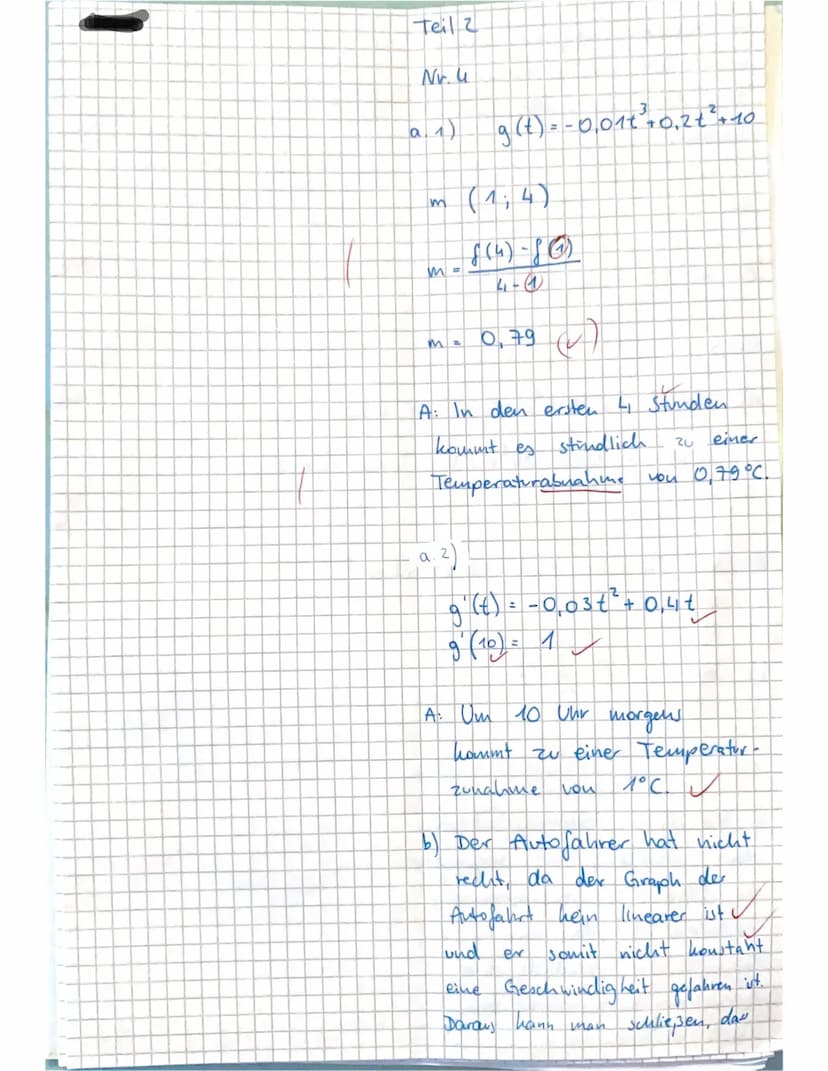 Teil 2
Nr. 4
a. 1) g(t) = -0,01t³+0,2t²+10
m (1; 4)
m = f(4) - f(1)
4 - 1
m = 0,79 (✓)
A: In den ersten 4 Stunden
kommt es stündlich zu einer
Temperaturabnahme von 0,79°C.
a. 2)
g'(t) = -0,03t² + 0,4t
g'(10) = 1
A: Um 10 Uhr morgens
kommt zu einer Temperatur-
zunahme von 1°C.
b) Der Autofahrer hat nicht
recht, da der Graph der
Autofahrt kein linearer ist
und er somit nicht konstant
eine Geschwindigkeit gefahren ist.
Daraus kann man schließen, das